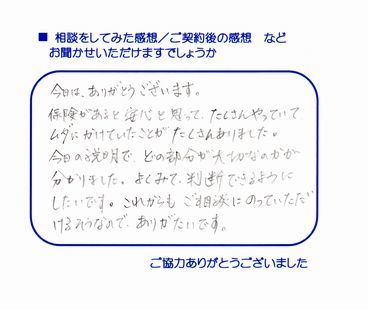 ■ 相談をしてみた感想／ご契約後の感想 など
お聞かせいただけますでしょうか
今日は、ありがとうございます。
保険があると安心と思って、たくさんやっていて
ムダにかけていたことがたくさんありました。
今日の説明で、どの部分が大切なのかが
分かりました。よくみて、判断できるように
したいです。これからもご相談にのっていただ
けるそうなので、ありがたいです。
ご協力ありがとうございました